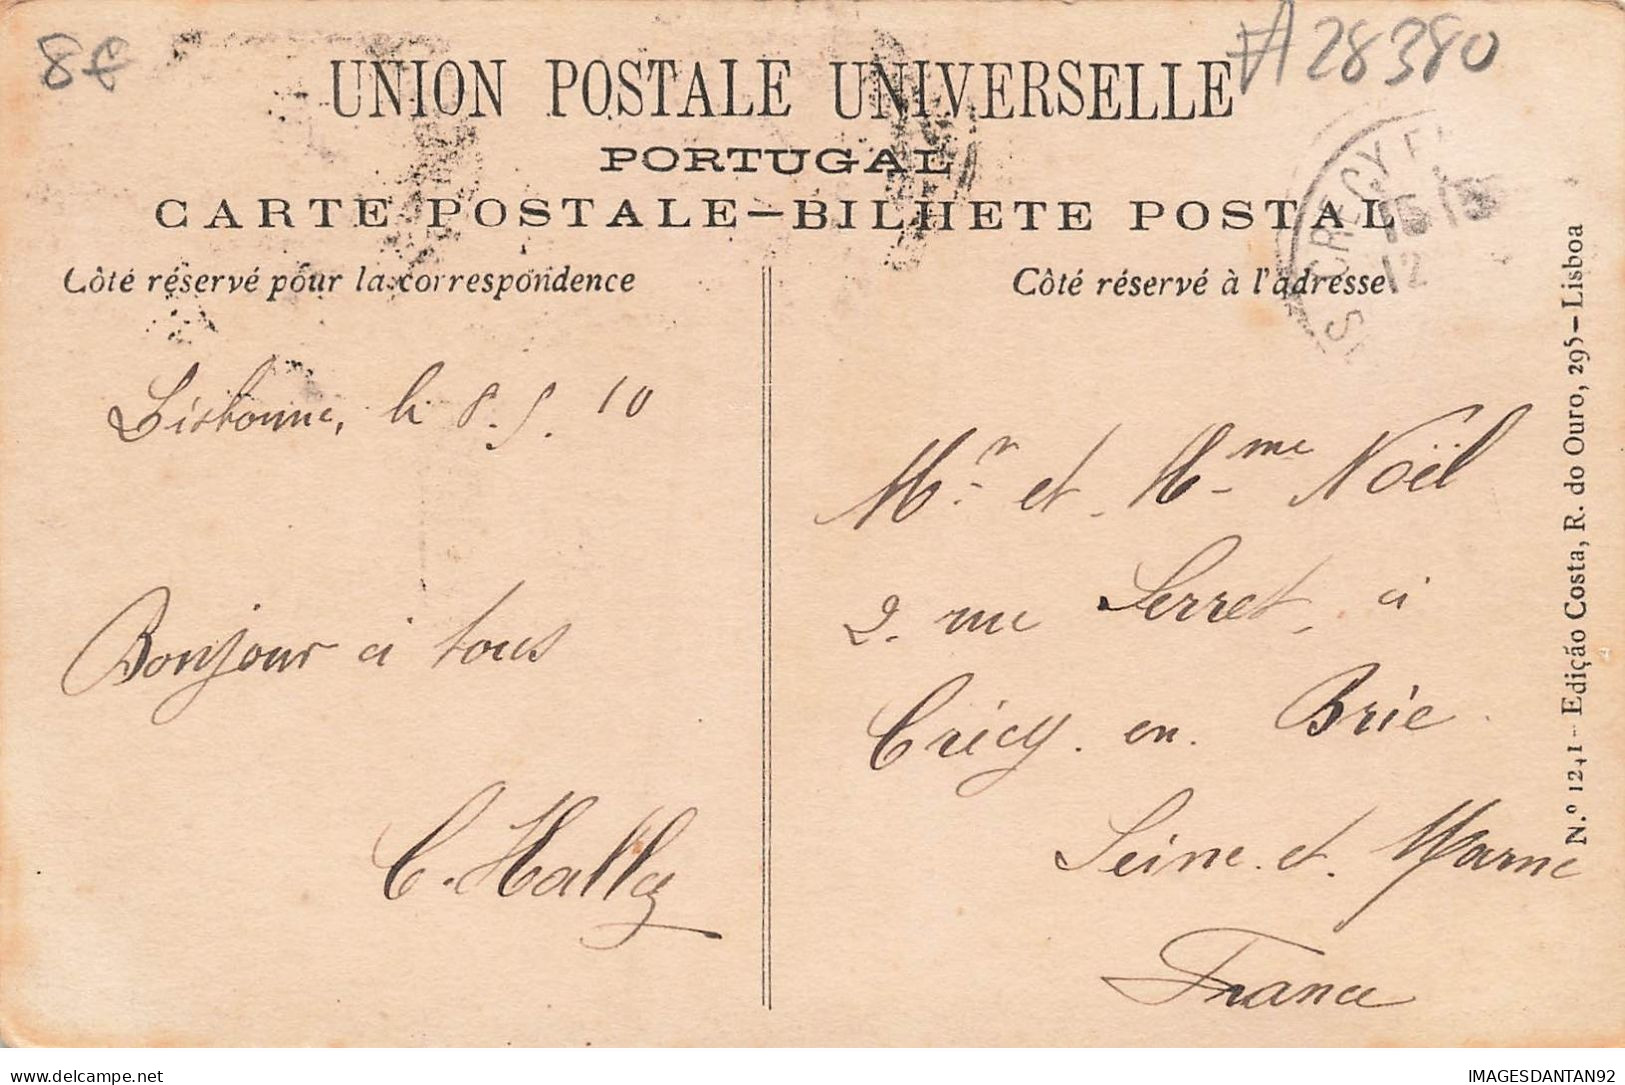 8€
#28380
UNION POSTALE UNIVERSELLE
PORTUGAL
CARTE POSTALE—BILHETE POSTAL
Côté réservé pour la correspondence
Côté réservé à l'adresse
CRÉCY
12
Lisbonne, le 8.5.10
Bonjour à tous
C. Hally
Mr. et Mme Noël
2. rue Serret, à
Crécy. en. Brie.
Seine. et. Marne
France
N.º 1241—Edição Costa, R. do Ouro, 295—Lisboa
IMAGESDANTAN92